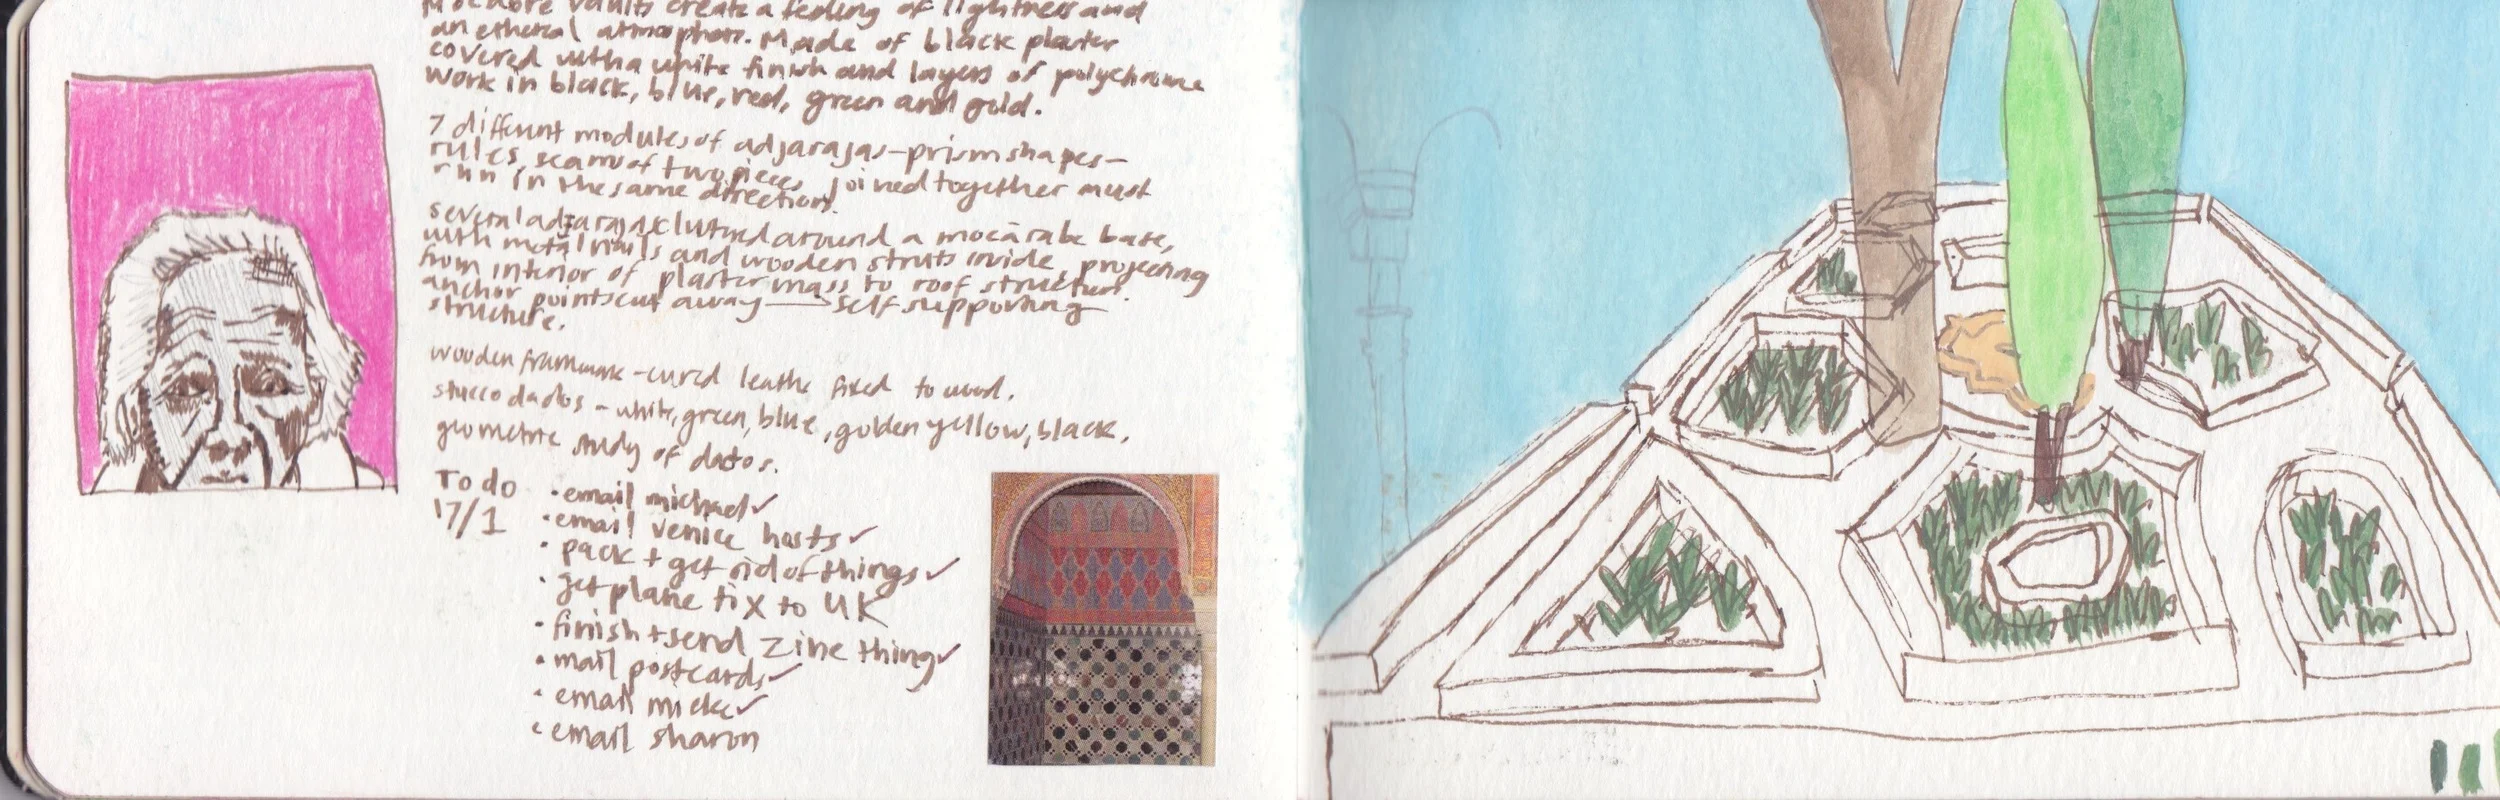 Mocarabe vaults create a feeling of lightness and
an etheral atmosphere. Made of black plaster
covered with a white finish and layers of polychrome
work in black, blue, red, green and gold.
7 different modules of adjarajas - prism shapes -
rules, seams of two pieces joined together must
run in the same direction.
several adjarajas clustered around a mocárabe base,
with metal nails and wooden struts inside projecting
from interior of plaster mass to roof structure.
anchor points cut away → self supporting
structure.
wooden framework - cured leather fixed to wood.
stucco dados - white, green, blue, golden yellow, black.
geometric study of dados.
To do
17/1
· email michael ✓
· email venice hosts ✓
· pack + get rid of things ✓
· get plane tix to UK
· finish + send zine thing ✓
· mail postcards ✓
· email mieke ✓
· email sharon